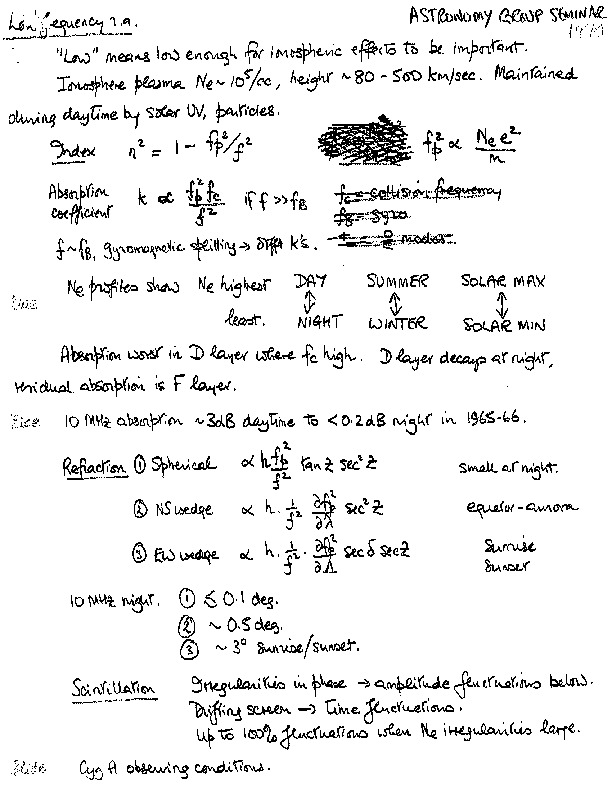 Low frequency r.a.
ASTRONOMY GROUP SEMINAR
"Low" means low enough for ionospheric effects to be important.
Ionosphere plasma Ne ~ 10⁵/cc, height ~ 80 - 500 km/sec. Maintained
during daytime by solar UV, particles.
Index n² = 1 - fp²/f² fp² ∝ Ne e²/m
Absorption coefficient k ∝ fp² fc/f² if f >> fB
fc = collision frequency
fB = gyro
f ~ fB, gyromagnetic splitting → diff't k's.
Ne profiles show Ne highest DAY SUMMER SOLAR MAX
↕ ↕ ↕
least. NIGHT WINTER SOLAR MIN
Absorption worst in D layer where fc high. D layer decays at night,
residual absorption is F layer.
Slide 10 MHz absorption ~3dB daytime to <0.2dB night in 1965-66.
Refraction ① Spherical ∝ h fp²/f² tan z sec² z small at night.
② NS wedge ∝ h. 1/f² ∂fp²/∂λ sec² z equator-aurora
③ EW wedge ∝ h. 1/f² . ∂fp²/∂Λ sec δ sec z Sunrise
Sunset
10 MHz night. ① ≤ 0.1 deg.
② ~ 0.5 deg.
③ ~ 3° sunrise/sunset.
Scintillation Irregularities in phase → amplitude fluctuations below.
Drifting screen → time fluctuations.
Up to 100% fluctuations when Ne irregularities large.
Slide Cyg A observing conditions.